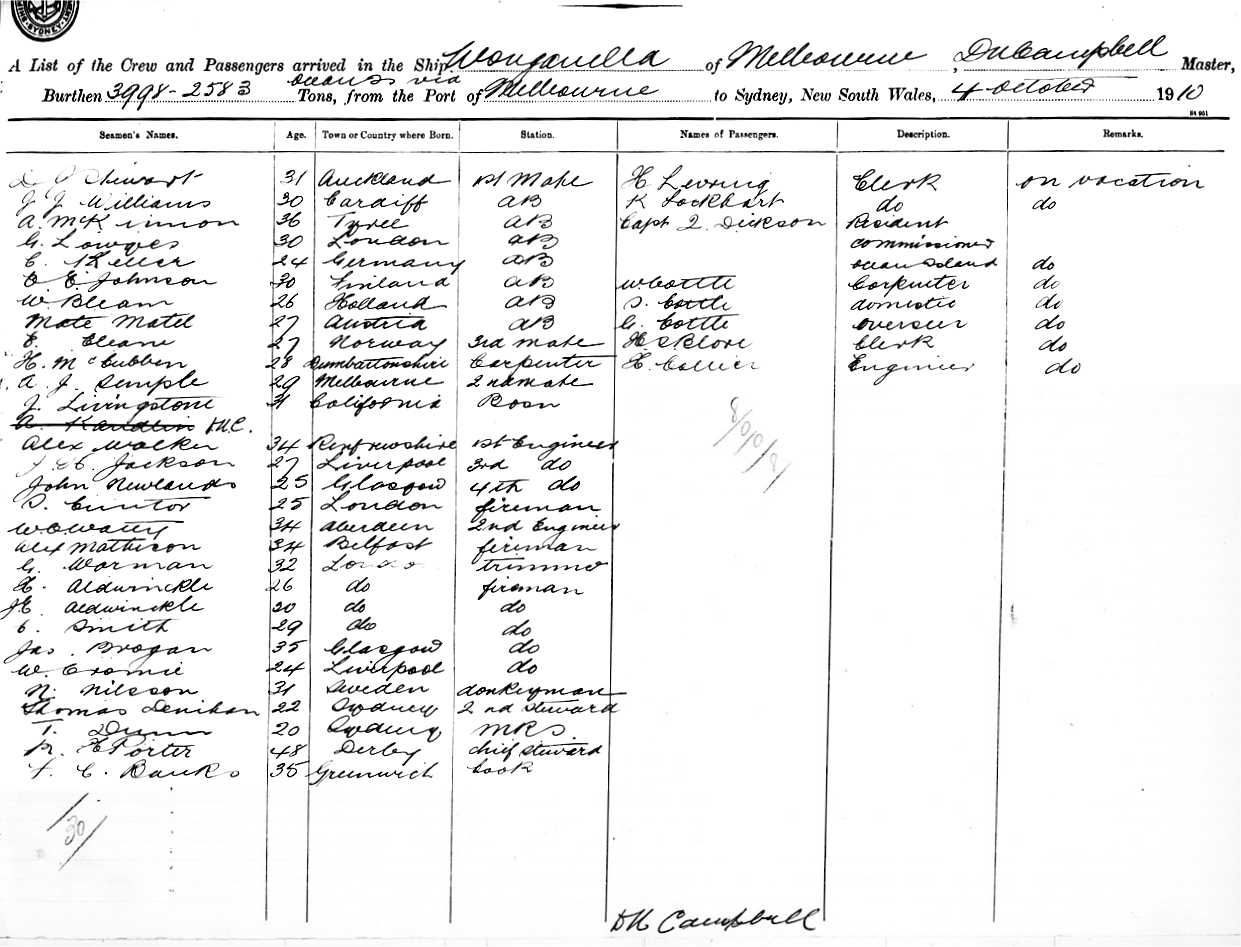 A List of the Crew and Passengers arrived in the Ship Wonganella of Melbourne, D M Campbell Master,
Burthen 3998-2583 Tons, from the Port of Ocean Is via Melbourne to Sydney, New South Wales, 4 October 1910
Seamen's Names. Age. Town or Country where Born. Station. Names of Passengers. Description. Remarks.
Stewart 31 Auckland 1st Mate H Levring Clerk on vacation
J J Williams 30 Cardiff AB K Lockhart do do
A. McKinnon 36 Tyree AB Capt Q. Dickson Resident
G. Lowges 30 London AB commissioner
C. Keller 24 Germany AB Ocean Island do
E Johnson 30 Finland AB W Cottle Carpenter do
W. Bleam 26 Holland AB S. Cottle domestic do
Mate Matel 27 Austria AB G. Cottle overseer do
E. Eleane 27 Norway 3rd mate H S Klore Clerk do
H. McCubben 28 Dumbartonshire Carpenter H. Collier Engineer do
A. J. Semple 29 Melbourne 2nd mate
J. Livingstone 31 California Bosn
A. Kandlin
Alex Walker 34 Renfrewshire 1st Engineer
Jackson 27 Liverpool 3rd do
John Newlands 25 Glasgow 4th do
S. 25 London fireman
W O Watty 34 Aberdeen 2nd Engineer
Alex Mathison 34 Belfast fireman
G. Worman 32 London trimmer
H. Aldwinckle 26 do fireman
H. Aldwinckle 20 do do
C. Smith 29 do do
Jas. Brogan 35 Glasgow do
W. Cromie 24 Liverpool do
N. Nilsson 31 Sweden donkeyman
Thomas Denihan 22 Sydney 2nd Steward
T. Dunn 20 Sydney MRS.
E Porter 48 Derby chief steward
F. C. Banks 35 Greenwich Cook
30
D M Campbell